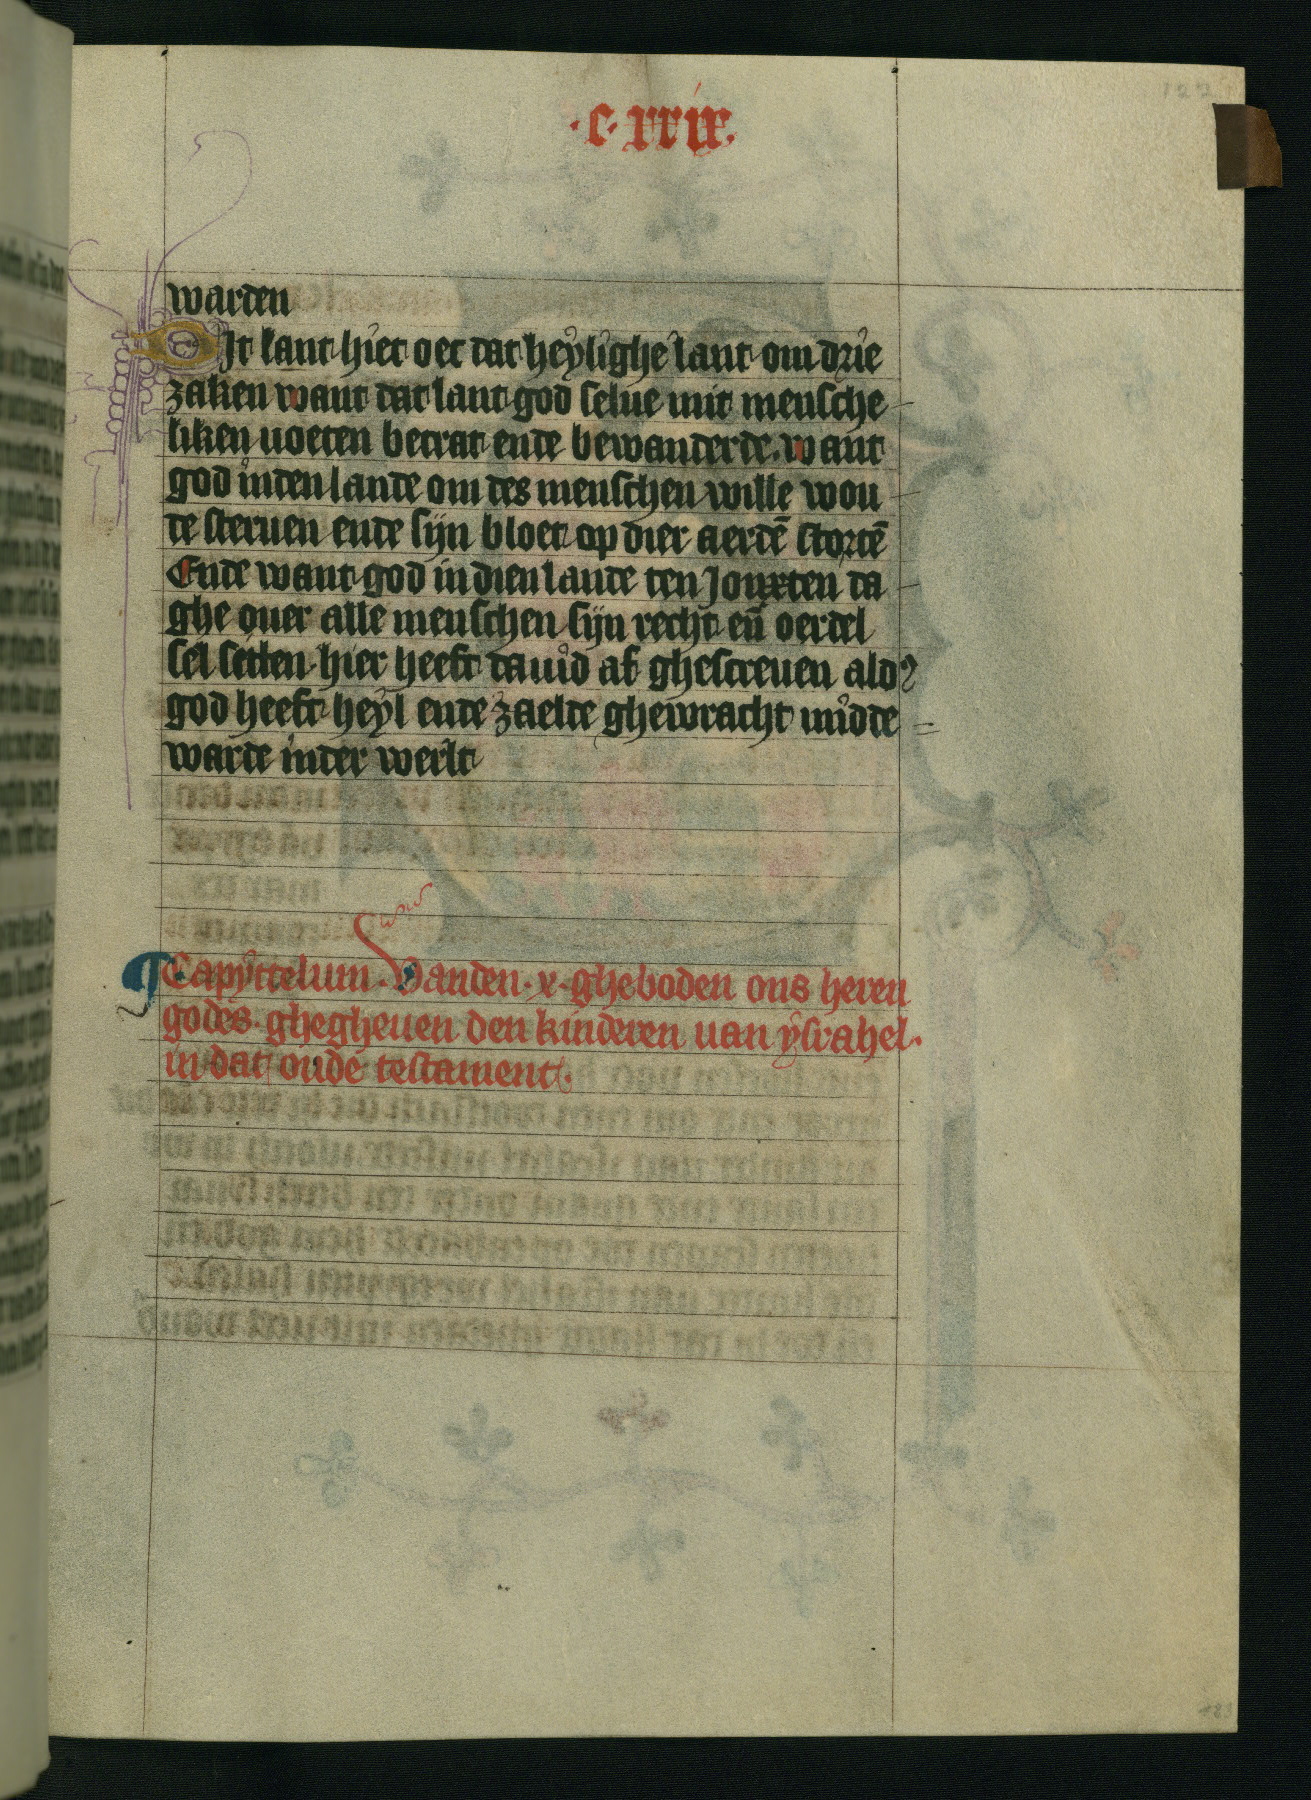 ·c·xxix·
warden
Dit lant hiet oec dat heylighe lant om drie
zaken want dat lant god selue mit mensche
liken uoeten betrat ende bewanderde. want
god inden lande om des menschen wille wou
de steruen ende sijn bloet op dier aerdē stortē
Ende want god in dien lande ten jouxten da
ghe ouer alle menschen sijn recht eñ oerdel
sel setten. hier heeft dauid af ghescreuen ald9
god heeft heyl ende zaelde ghewracht midde
warde inder werlt
¶ Capittelum. Vanden .x. gheboden ons heren
godes. ghegheuen den kinderen uan ysrahel.
in dat oude testament.